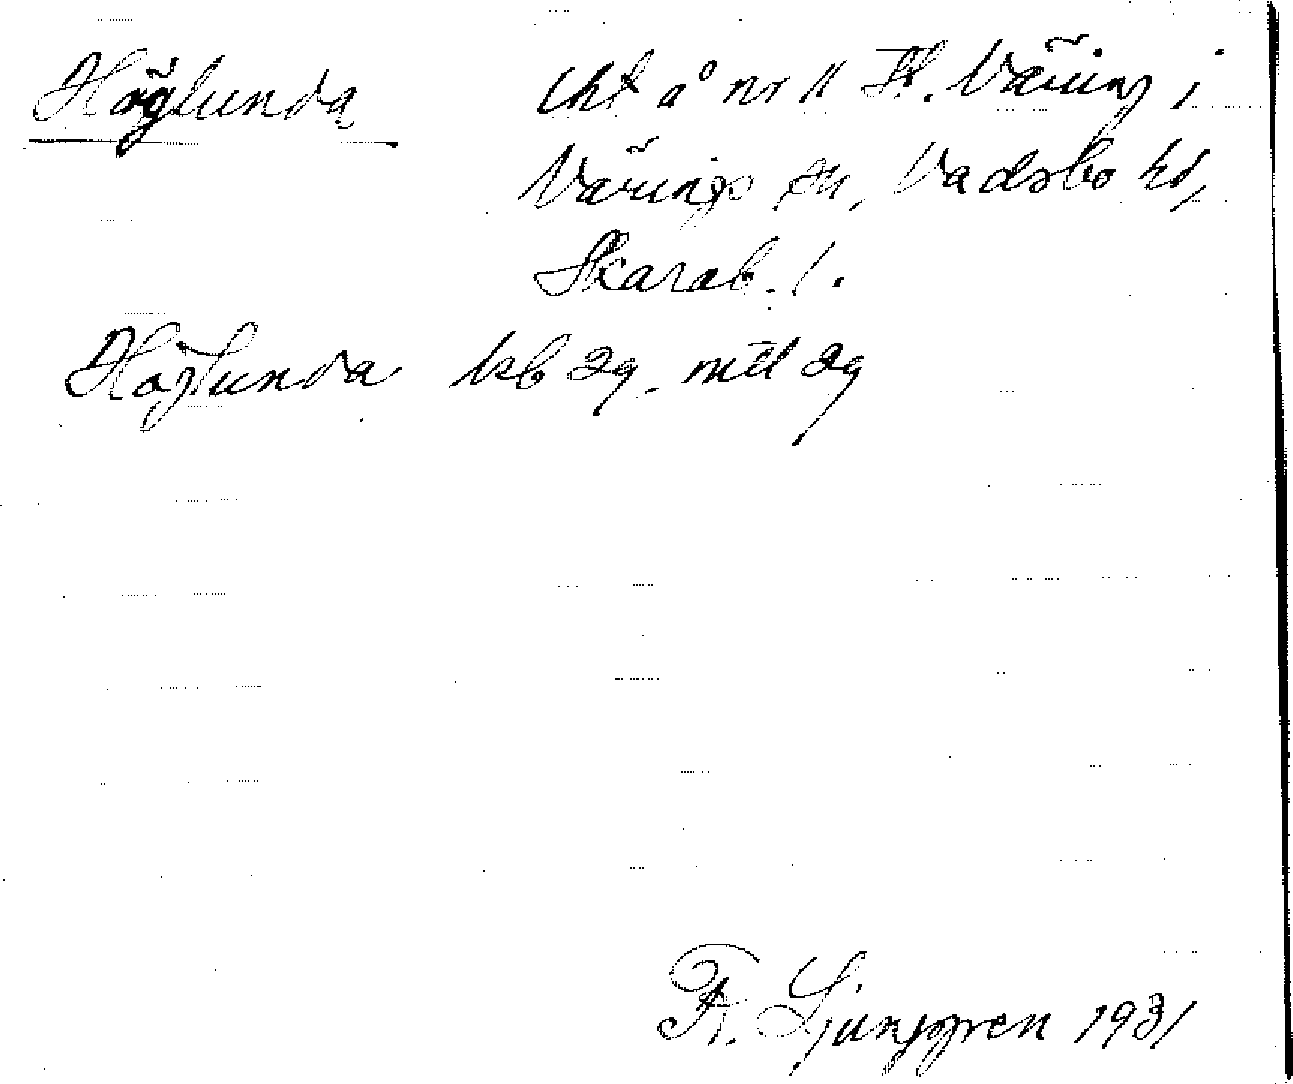 Höglunda lht å nr 11 St. Väring i
Värings sn, Vadsbo hd,
Skarab. l.
Höglunda kb 29. mtl 29
Fr. Ljunggren 1931